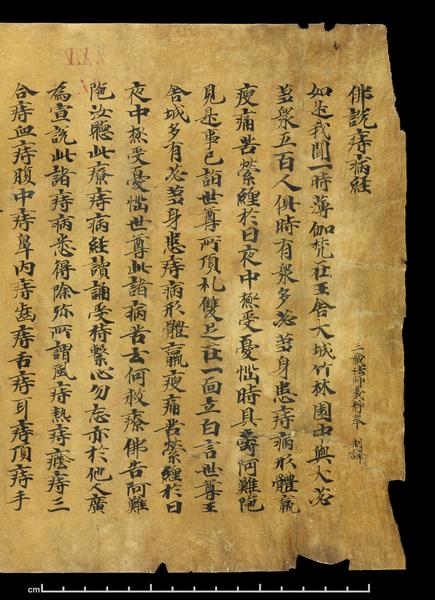 佛說痔病經
三藏法師義淨奉 制譯
如是我聞一時薄伽梵在王舍大城竹林園中與大苾
蒭衆五百人俱時有衆多苾蒭身患痔病形體羸
瘦痛苦縈纏於日夜中極受憂惱時具壽阿難陁
見是事已詣世尊所頂礼雙足在一面立白言世尊王
舍城多有苾蒭身患痔病形體羸瘦痛苦縈纏於日
夜中極受憂惱世尊此諸病苦云何救療佛告阿難
陁汝聽此療痔病經讀誦受持繫心勿忘亦於他人廣
為宣說此諸痔病悉得除弥所謂風痔熱痔癊痔三
合痔血痔腹中痔鼻內痔齒痔舌痔耳痔頂痔手
cm